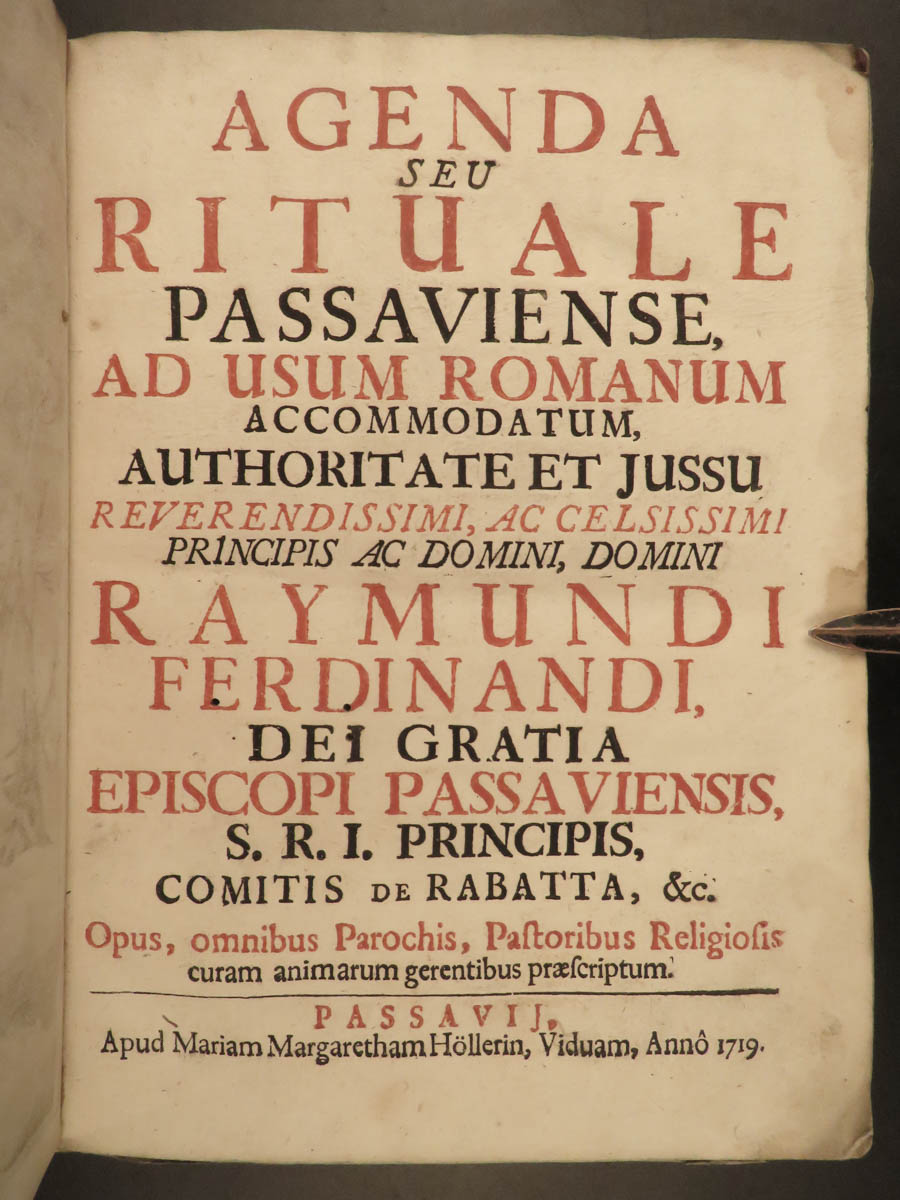 AGENDA
SEU
RITUALE
PASSAVIENSE,
AD USUM ROMANUM
ACCOMMODATUM,
AUTHORITATE ET JUSSU
REVERENDISSIMI, AC CELSISSIMI
PR1NCIPIS AC DOMINI, DOMINI
RAYMUNDI
FERDINANDI,
DEI GRATIA
EPISCOPI PASSAVIENSIS,
S. R. I. PRINCIPIS,
COMITIS DE RABATTA, &c.
Opus, omnibus Parochis, Paſtoribus Religioſis
curam animarum gerentibus præſcriptum.
PASSAVIJ,
Apud Mariam Margaretham Höllerin, Viduam, Annô 1719.